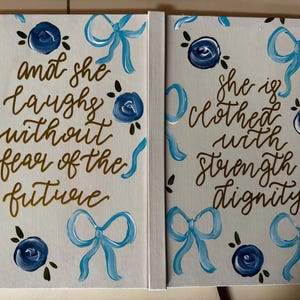 and she
laughs
without
fear of the
future
she is
clothed
with
strength
dignity